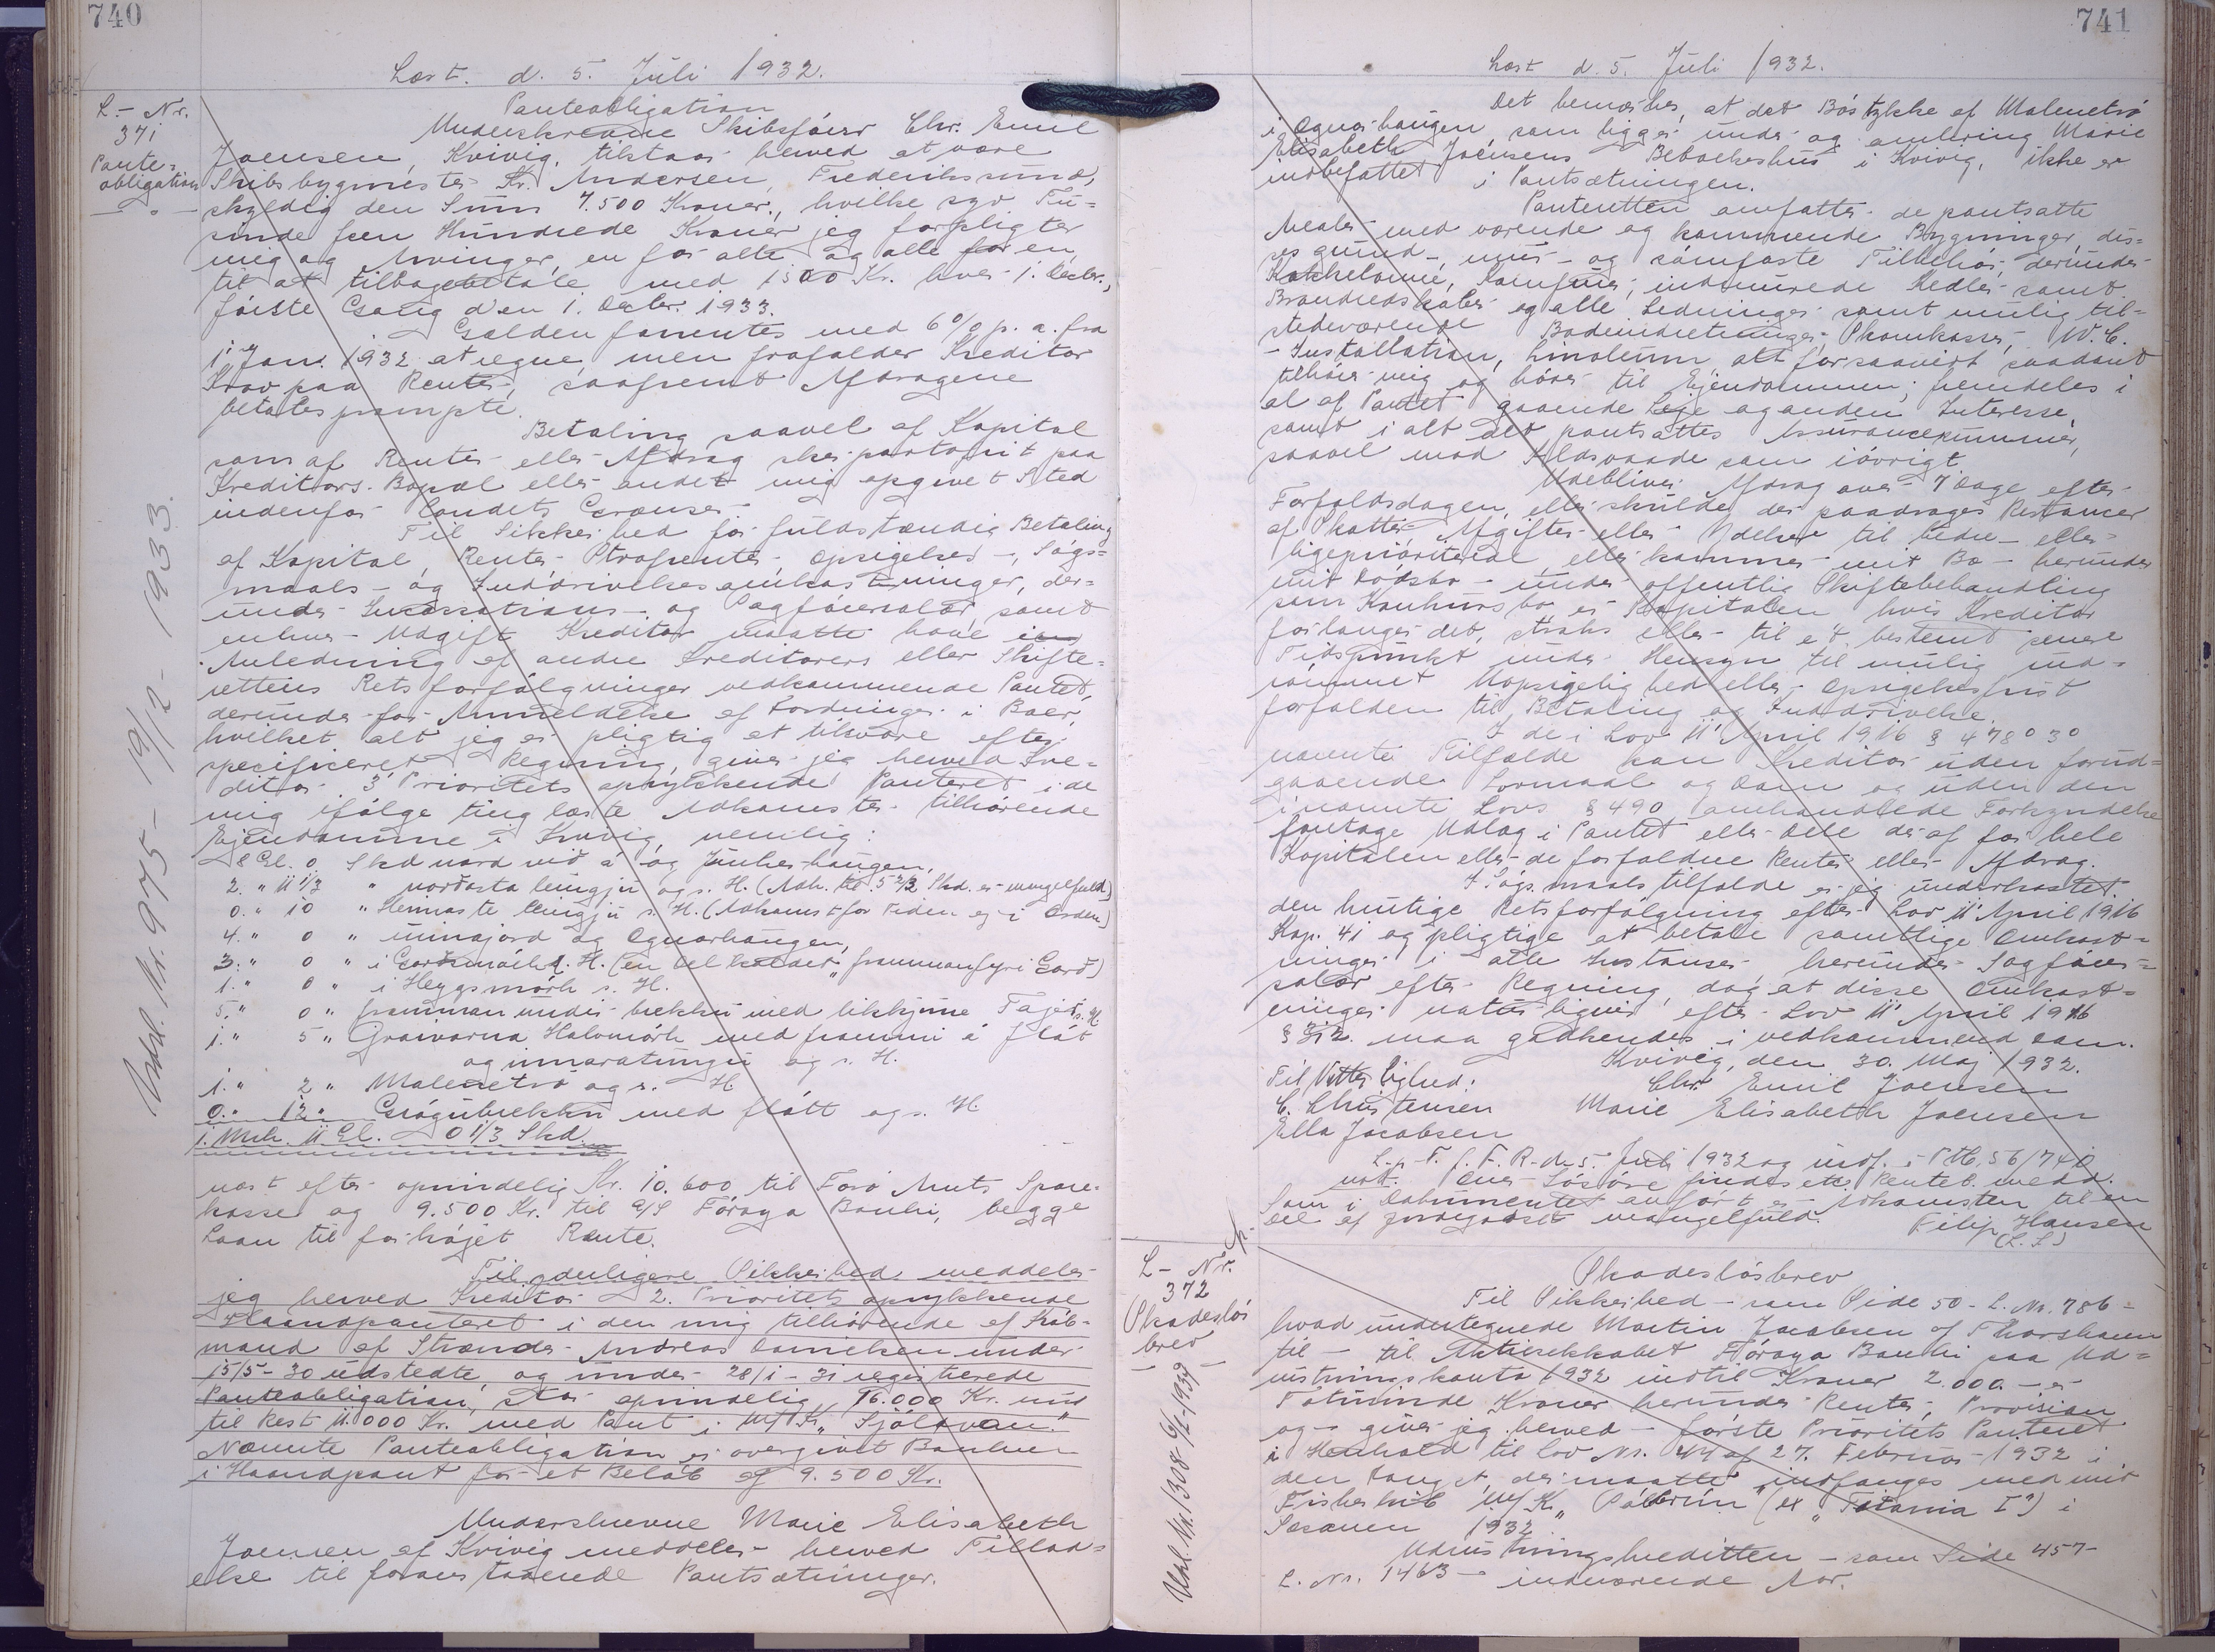 740
Læst. d. 5. Juli 1932.
L- Nr.
371
Pante-
obligation
Panteobligation
Underskrevne Skibsfører Chr. Emil
Joensen, Kvivig, tilstaar herved at være
Skibsbygmester Kr. Andersen, Frederikssund,
skyldig den Sum 7.500 Kroner, hvilke syv Tu-
sinde fem Hundrede Kroner jeg forpligter
mig og Arvinger, en for alle og alle for en,
til at tilbagebetale med 1500 Kr. hver 1. Decbr.,
første Gang den 1. Decbr. 1933.
Gælden forrentes med 6% p. a. fra
1' Jan. 1932 at regne, men frafalder Kreditor
Krav paa Renter, saafremt Afdragene
betales prompte.
Betaling saavel af Kapital
som af Renter eller Afdrag sker portofrit paa
Kreditors Bopæl eller andet mig opgivet Sted
indenfor Landets Grænser.
Til Sikkerhed for fuldstændig Betaling
af Kapital, Renter, Strafrenter, Opsigelses-, Søgs-
maals- og Inddrivelsesomkostninger, der-
under Incassations- og Sagførersalær, samt
enhver Udgift Kreditor maatte have i
Anledning af andre Kreditorers eller Skifte-
rettens Retsforfølgninger vedkommende Pantet,
derunder for Anmeldelse af Fordringer i Boer,
hvilket alt jeg er pligtig at tilsvare efter
specificeret Regning, giver jeg herved Kre-
ditor 3' Prioritets oprykkende Panteret i de
mig ifølge tinglæste Adkomster tilhørende
Ejendomme i Kvivig, nemlig:
8 Gl. 0 Skd nord við á og Junkerhaugen,
2. " 11 1/3 " norðasta lungju og s. H. (Adk. til 5 2/3 Skd. er mangelfuld)
0. " 10 " Heimaste lungju s. H. (Adkomst for Tiden ej i Orden)
4. " 0 " innajord og Ognarhaugen,
3. " 0 " i Garðsmørk s. H. (en Del kaldes "frammanfyri Garð)
1. " 0 " i Heygsmørk s. H.
5. " 0 " framman undir brekku med likkjune Tajet s. H
1. " 5 " Graivarna Halvmørk med frammi á flát
og innaratungu og s. H.
1. " 2 " Malenetrø og s. H
0. " 12 " Grógubrekku med flátt og s. H.
1. Mrk. 11 Gl. 0 1/3 Skd.
næst efter oprindelig Kr. 10.600 til Færø Amts Spare-
kasse og 9.500 Kr. til A/S Føroya Banki, begge
Laan til forhøjet Rente.
Til yderligere Sikkerhed meddeler
jeg herved Kreditor 2. Prioritets oprykkende
Haandpanteret i den mig tilhørende af Køb-
mand af Strænder Andreas Danielsen under
15/5-30 udstedte, og under 28/1-31 registrerede
Panteobligation, stor oprindelig 16.000 Kr. nu
til Rest 11.000 Kr. med Pant i M/Sk. "Sjólavan."
Nævnte Panteobligation er overgivet Banken
i Haandpant for et Beløb af 9.500 Kr.
Underskrevne Marie Elisabeth
Joensen af Kvivig meddeler herved Tillad-
else til foranstaaende Pantsætninger.
Udsl. Nr. 975 - 19/12 - 1933.
741
Læst d. 5. Juli 1932.
Det bemærkes, at det Bøstykke af Malenetrø
i Ognarhaugen som ligger under og omkring Marie
Elisabeth Joensens Beboelseshus i Kvivig, ikke er
indbefattet i Pantsætningen.
Panteretten omfatter de pantsatte
Arealer med værende og kommende Bygninger, dis-
ses grund-, mur- og sømfaste Tilbehør, derunder
Kakkelovne, Komfurer, indmurede Kedler samt
Brandredskaber og alle Ledninger samt mulig til-
stedeværende Badeindretninger, Skornkasse, W.C.
-Installation, Linoleum alt forsaavidt saadant
tilhører mig og hører til Ejendommen; fremdeles i
al af Pantet gaaende Leje og anden Interesse,
samt i alt det pantsattes Assurancesummer,
saavel mod Ildsvaade som iøvrigt.
Udebliver Afdrag over 7 Dage efter
Forfaldsdagen, eller skulde der paadrages Restancer
af Skatter, Afgifter eller Ydelser til bedre- eller
ligeprioriterede, eller kommer mit Bo - herunder
mit Dødsbo - under offentlig Skiftebehandling
som Konkursbo er Kapitalen hvis Kreditor
forlanger det, straks eller til et bestemt senere
Tidspunkt under Hensyn til mulig ind-
rømmet Uopsigelighed eller Opsigelsesfrist
forfalden til Betaling og Inddrivelse.
I de i Lov 11' April 1916 § 478 o 30
nævnte Tilfælde kan Kreditor uden forud-
gaaende Lovmaal og Dom og uden den
i nævnte Lovs § 490 omhandlede Forkyndelse
foretage Udlæg i Pantet eller Dele deraf for hele
Kapitalen eller de forfaldne Renter eller Afdrag.
I Søgsmaalstilfælde er jeg underkastet
den hurtige Retsforfølgning efter Lov 11' April 1916
Kap. 41 og pligtige at betale samtlige Omkost-
ninger i alle Instanser herunder Sagfører-
salær efter Regning, dog at disse Omkost-
ninger naturligvis efter Lov 11' April 1916
§ 312. maa godkendes i vedkommende Dom.
Kvivig, den 30. Maj 1932.
Til Vitterlighed: Chr. Emil Joensen
C. Christensen Marie Elisabeth Joensen
Ella Jacobsen
L. p. T. f. F. R. d. 5. Juli 1932 og indf. i Ptb. 56/740
Som i Dokumentet anført er Adkomsten til en
Del af Jordgodset mangelfuld. Filip Hansen
(L.S.)
L- Nr.
372
Skadesløs
brev
Skadesløsbrev
Til Sikkerhed - som Side 50 - L. Nr. 786 -
hvad undertegnede Martin Jacobsen af Thorshavn
til - til Aktieselskabet Føroya Banki paa Ud-
rustningskonto 1932 indtil Kroner 2.000. - er
Totusinde Kroner herunder Renter, Provision
og - giver jeg herved - første Prioritets Panteret
i Henhold til Lov Nr. 44 af 27. Februar 1932 i
den Fangst, der maatte indfanges med mit
Fiskeskib M/K. " (ex "Titania I") i
Sæsonen 1932.
Udrustningskreditten - som Side 457-
L. Nr. 1463 - indeværende Aar.
Udsl. Nr. 1308 -1934